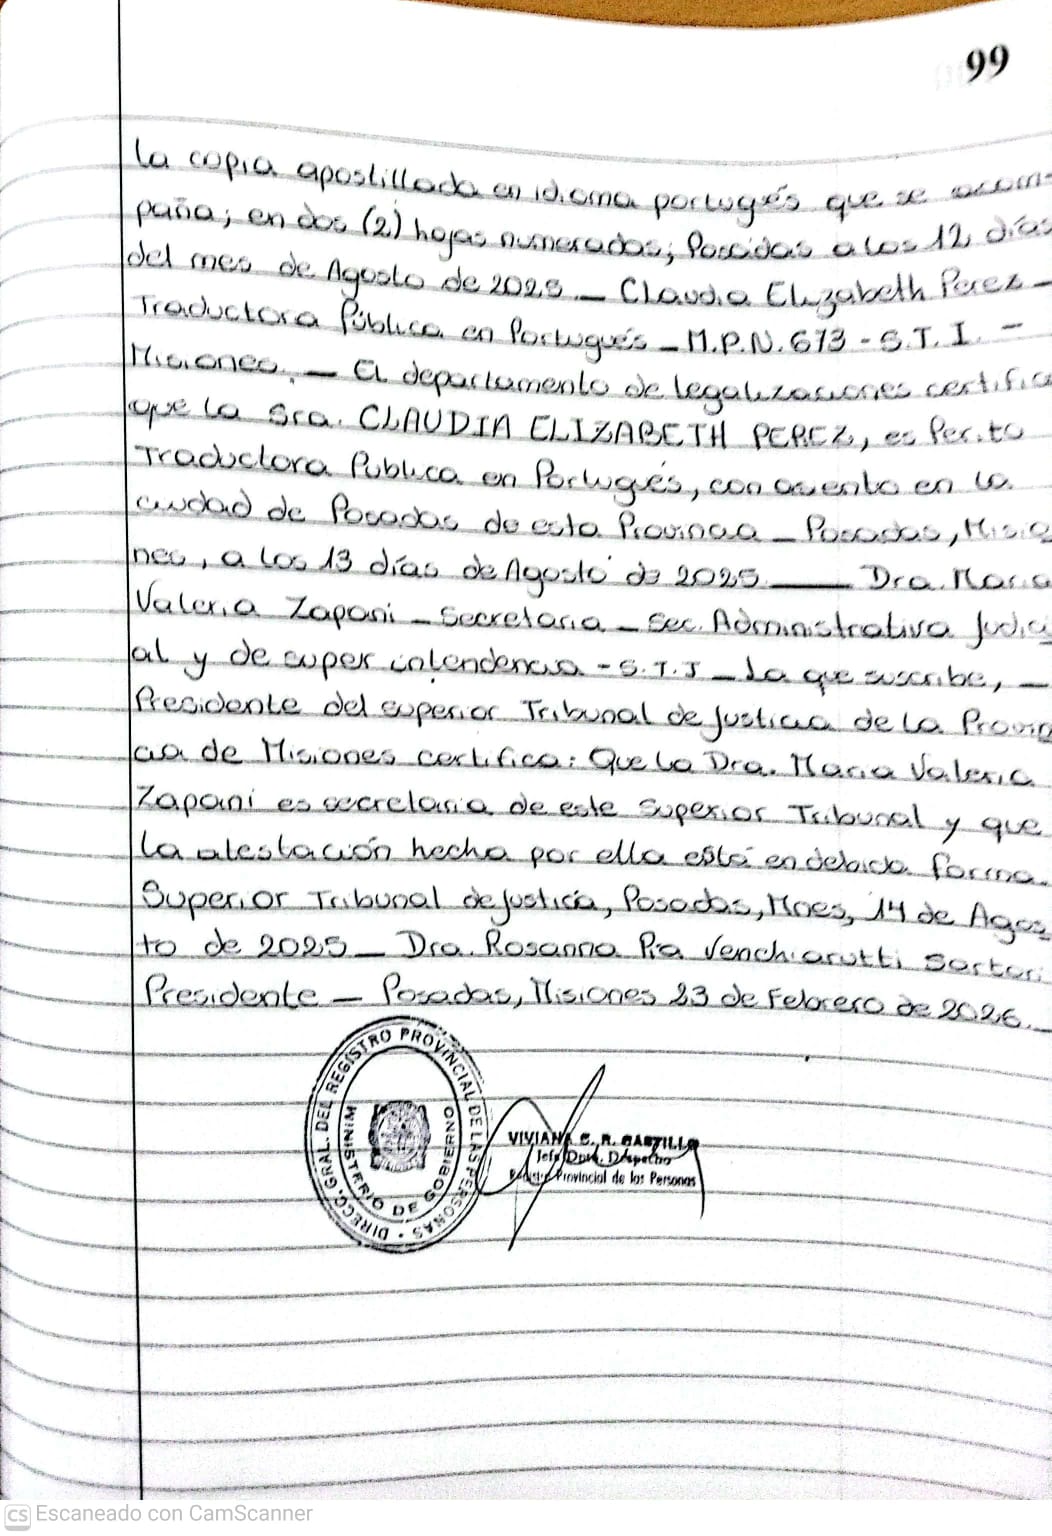 99
la copia apostillada en idioma portugués que se acom-
paña; en dos (2) hojas numeradas; Posadas a los 12 días
del mes de Agosto de 2025 _ Claudia Elizabeth Perez _
Traductora Pública en Portugués _ M.P.N. 673 - S.T.I. -
Misiones. _ El departamento de legalizaciones certifica
que la Sra. CLAUDIA ELIZABETH PEREZ, es Perito
Traductora Publica en Portugués, con asiento en la
ciudad de Posadas de esta Provincia _ Posadas, Misio
nes, a los 13 días de Agosto de 2025 ___ Dra. Maria
Valeria Zapani _ Secretaria _ Sec. Administrativa Judici
al y de super intendencia - S.T.J _ La que suscribe, _
Presidente del superior Tribunal de Justicia de la Provin
cia de Misiones certifica: Que la Dra. Maria Valeria
Zapani es secretaria de este Superior Tribunal y que
la atestación hecha por ella está en debida forma.
Superior Tribunal de justicia, Posadas, Mnes, 14 de Agos
to de 2025 _ Dra. Rosanna Pia Venchiarutti Sartori
Presidente _ Posadas, Misiones 23 de Febrero de 2026. _
DIRECC. GRAL. DEL REGISTRO PROVINCIAL DE LAS PERSONAS •
MINISTERIO DE GOBIERNO
VIVIANA C. R. CASTILLO
Jefa Dpto. Despacho
Registro Provincial de las Personas
CS Escaneado con CamScanner